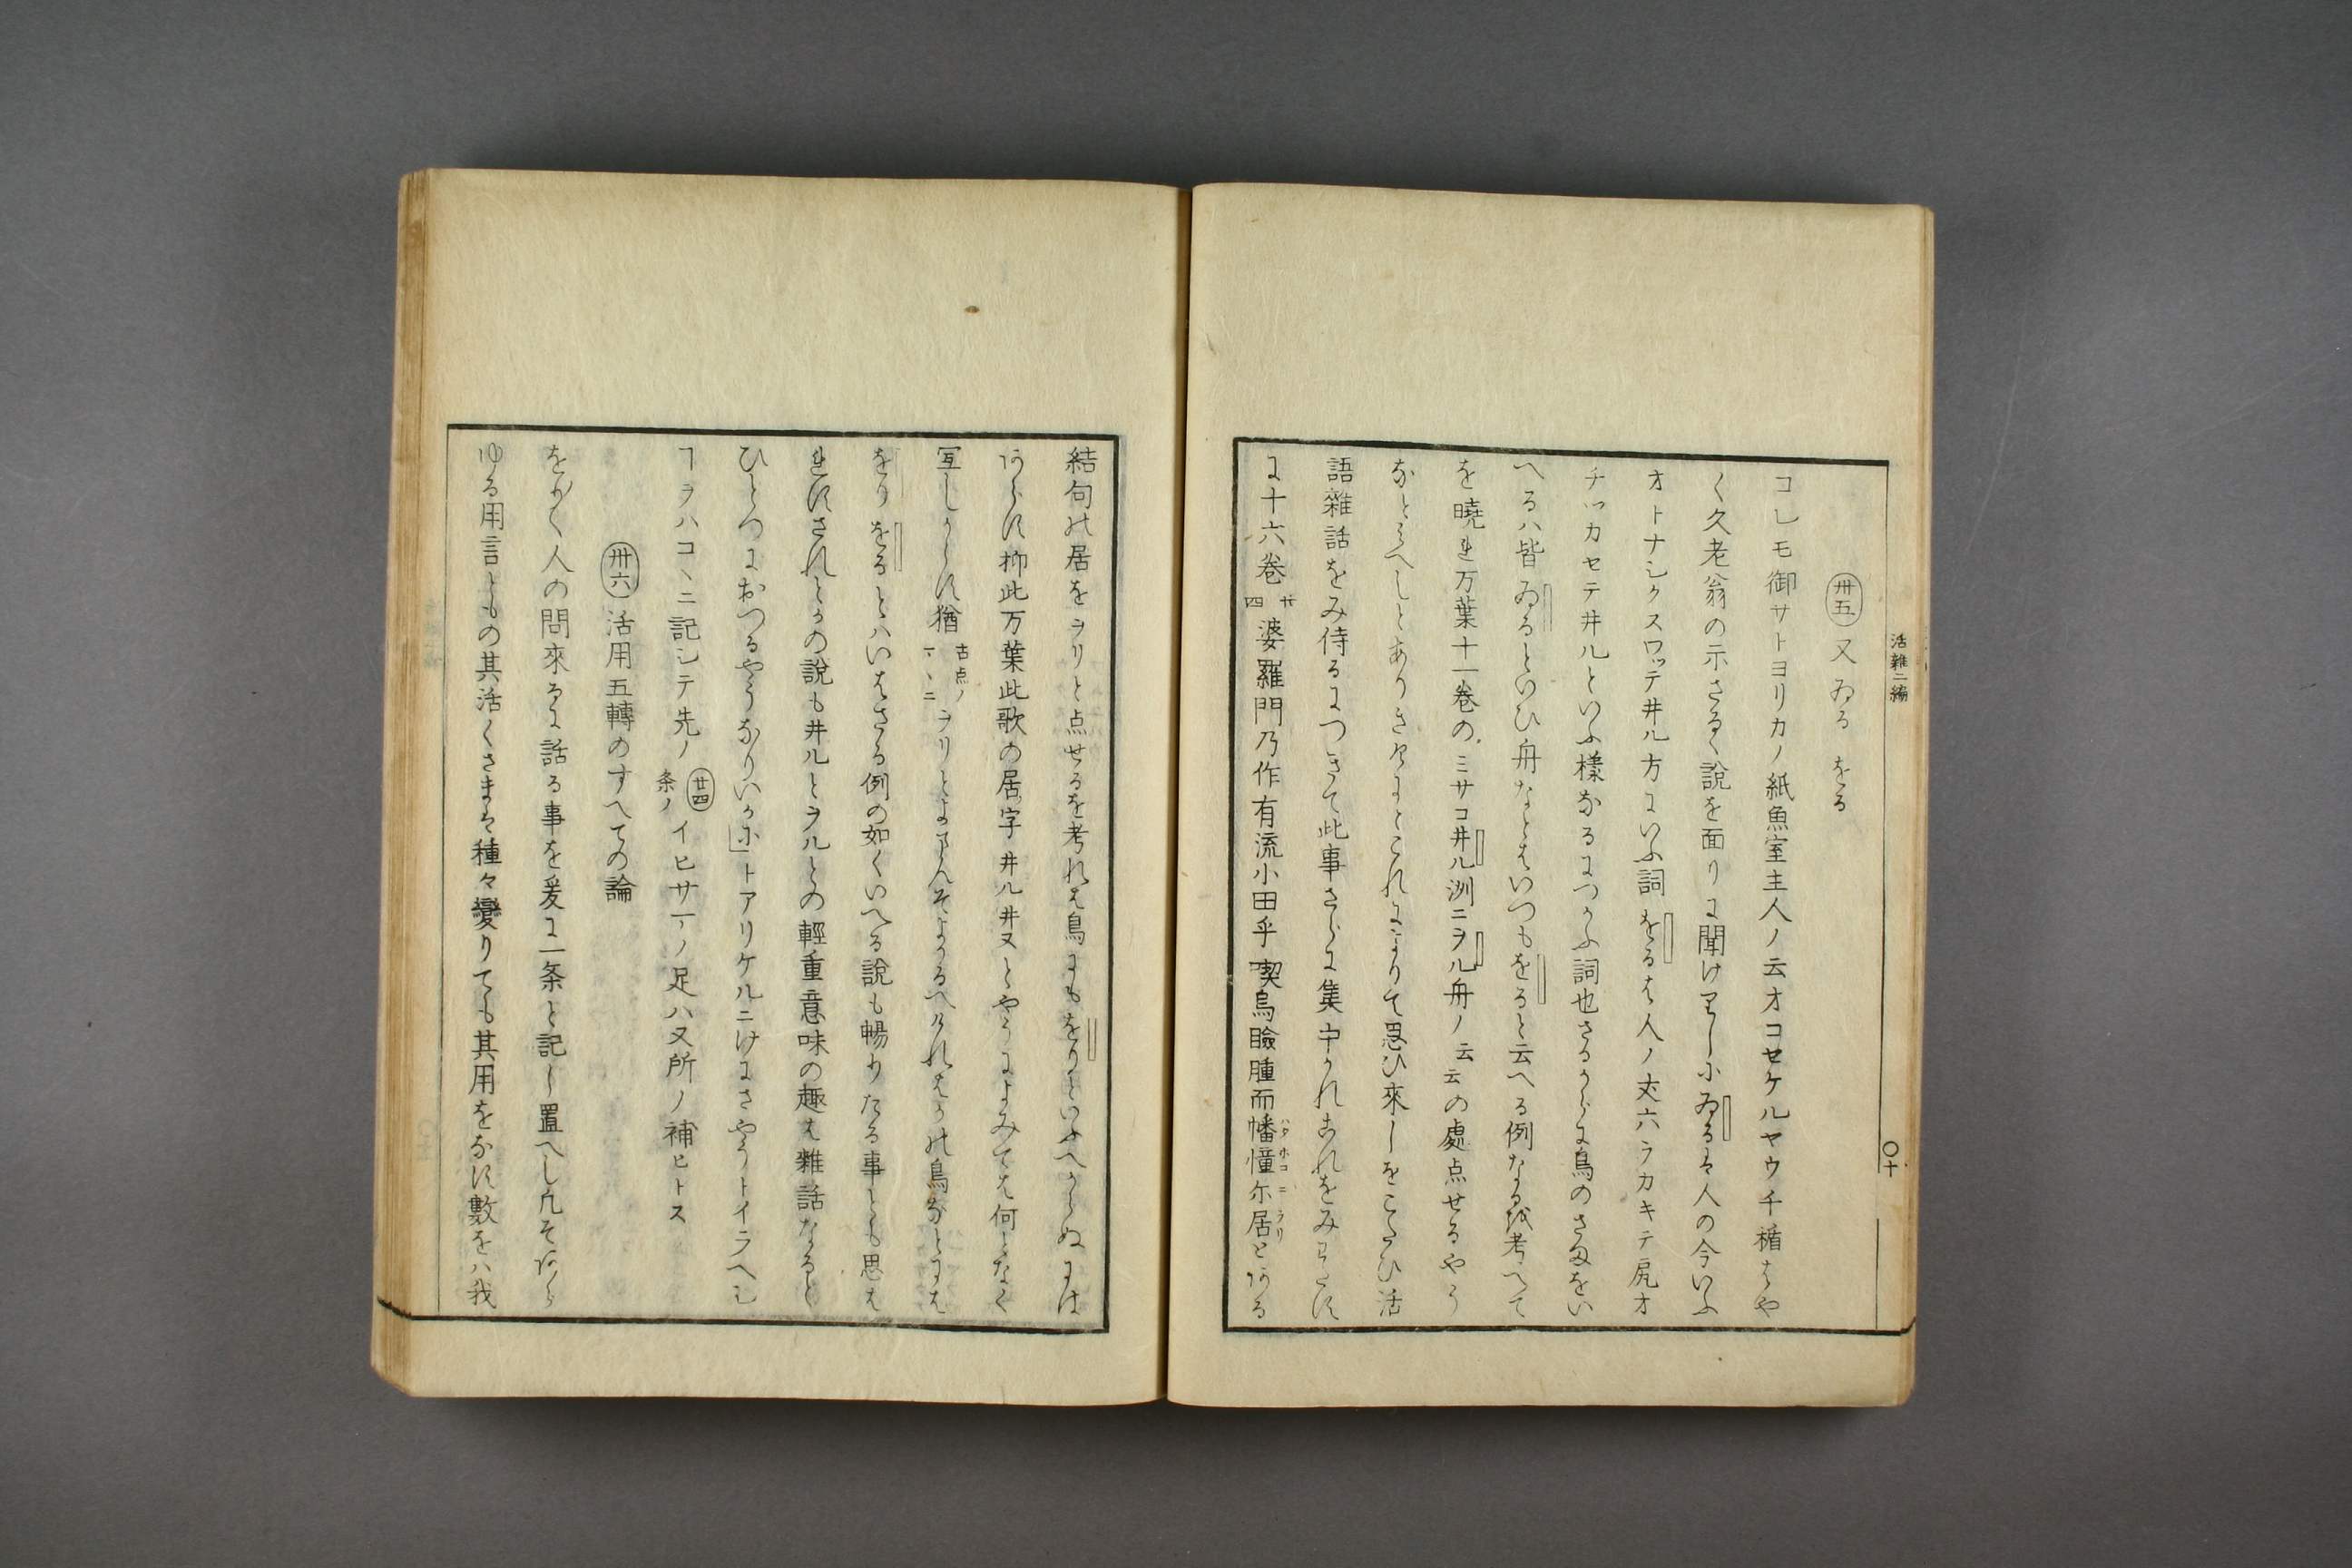 活雜二編
〇十
卅五 又ゐる をる
コレモ御サトヨリカノ紙魚室主人ノ云オコセケルヤウ千楯はや
く久老翁の示さるゝ説を面りに聞けらし小ゐるは人の今いふ
オトナシクスワッテ井ル方にいふ詞をるは人ノ丈六ラカキテ尻オ
チツカセテ井ルといふ様なるにつかふ詞也さるからに鳥のさまをい
へるハ皆ゐるといひ舟なとはいつもをると云へる例なる状考へて
を曉れ万葉十一巻のミサコ井ル洲ニヲル舟ノ云云の處点せるやう
なとみへしとありきけにとこれによりて思ひ來しをこたひ活
語雜話をみ侍るにつきて此事さらに集中かれこれをみわたす
に十六巻 廿四 婆羅門乃作有流小田乎喫烏瞼腫而幡幢尓居とある
ハタホコニヲリ
結句の居をヲリと点せるを考れは鳥にもをりといふへからぬには
あらす抑此万葉此歌の居字井ル井又とやうによみては何となく
冝しからす猶 古点ノマヽニ ヲリとよまんそよかるへけれはかの鳥なとには
をり をるとハいはさる例の如くいへる説も暢りたる事とも思は
れすされとかの説も井ルとヲルとの輕重意味の趣は雜話なると
ひとつにおつるやうなりいか尓」トアリケルニけにさやうトイラヘし
ヿヲハコヽニ記シテ先ノ 廿四条ノ イヒサマノ足ハヌ所ノ補ヒトス
卅六 活用五轉のすへての論
をりく人の問來るに話る事を爰に一条と記し置へし凡そあら
ゆる用言ともの其活くさまは種々變りても其用をなす數をハ我